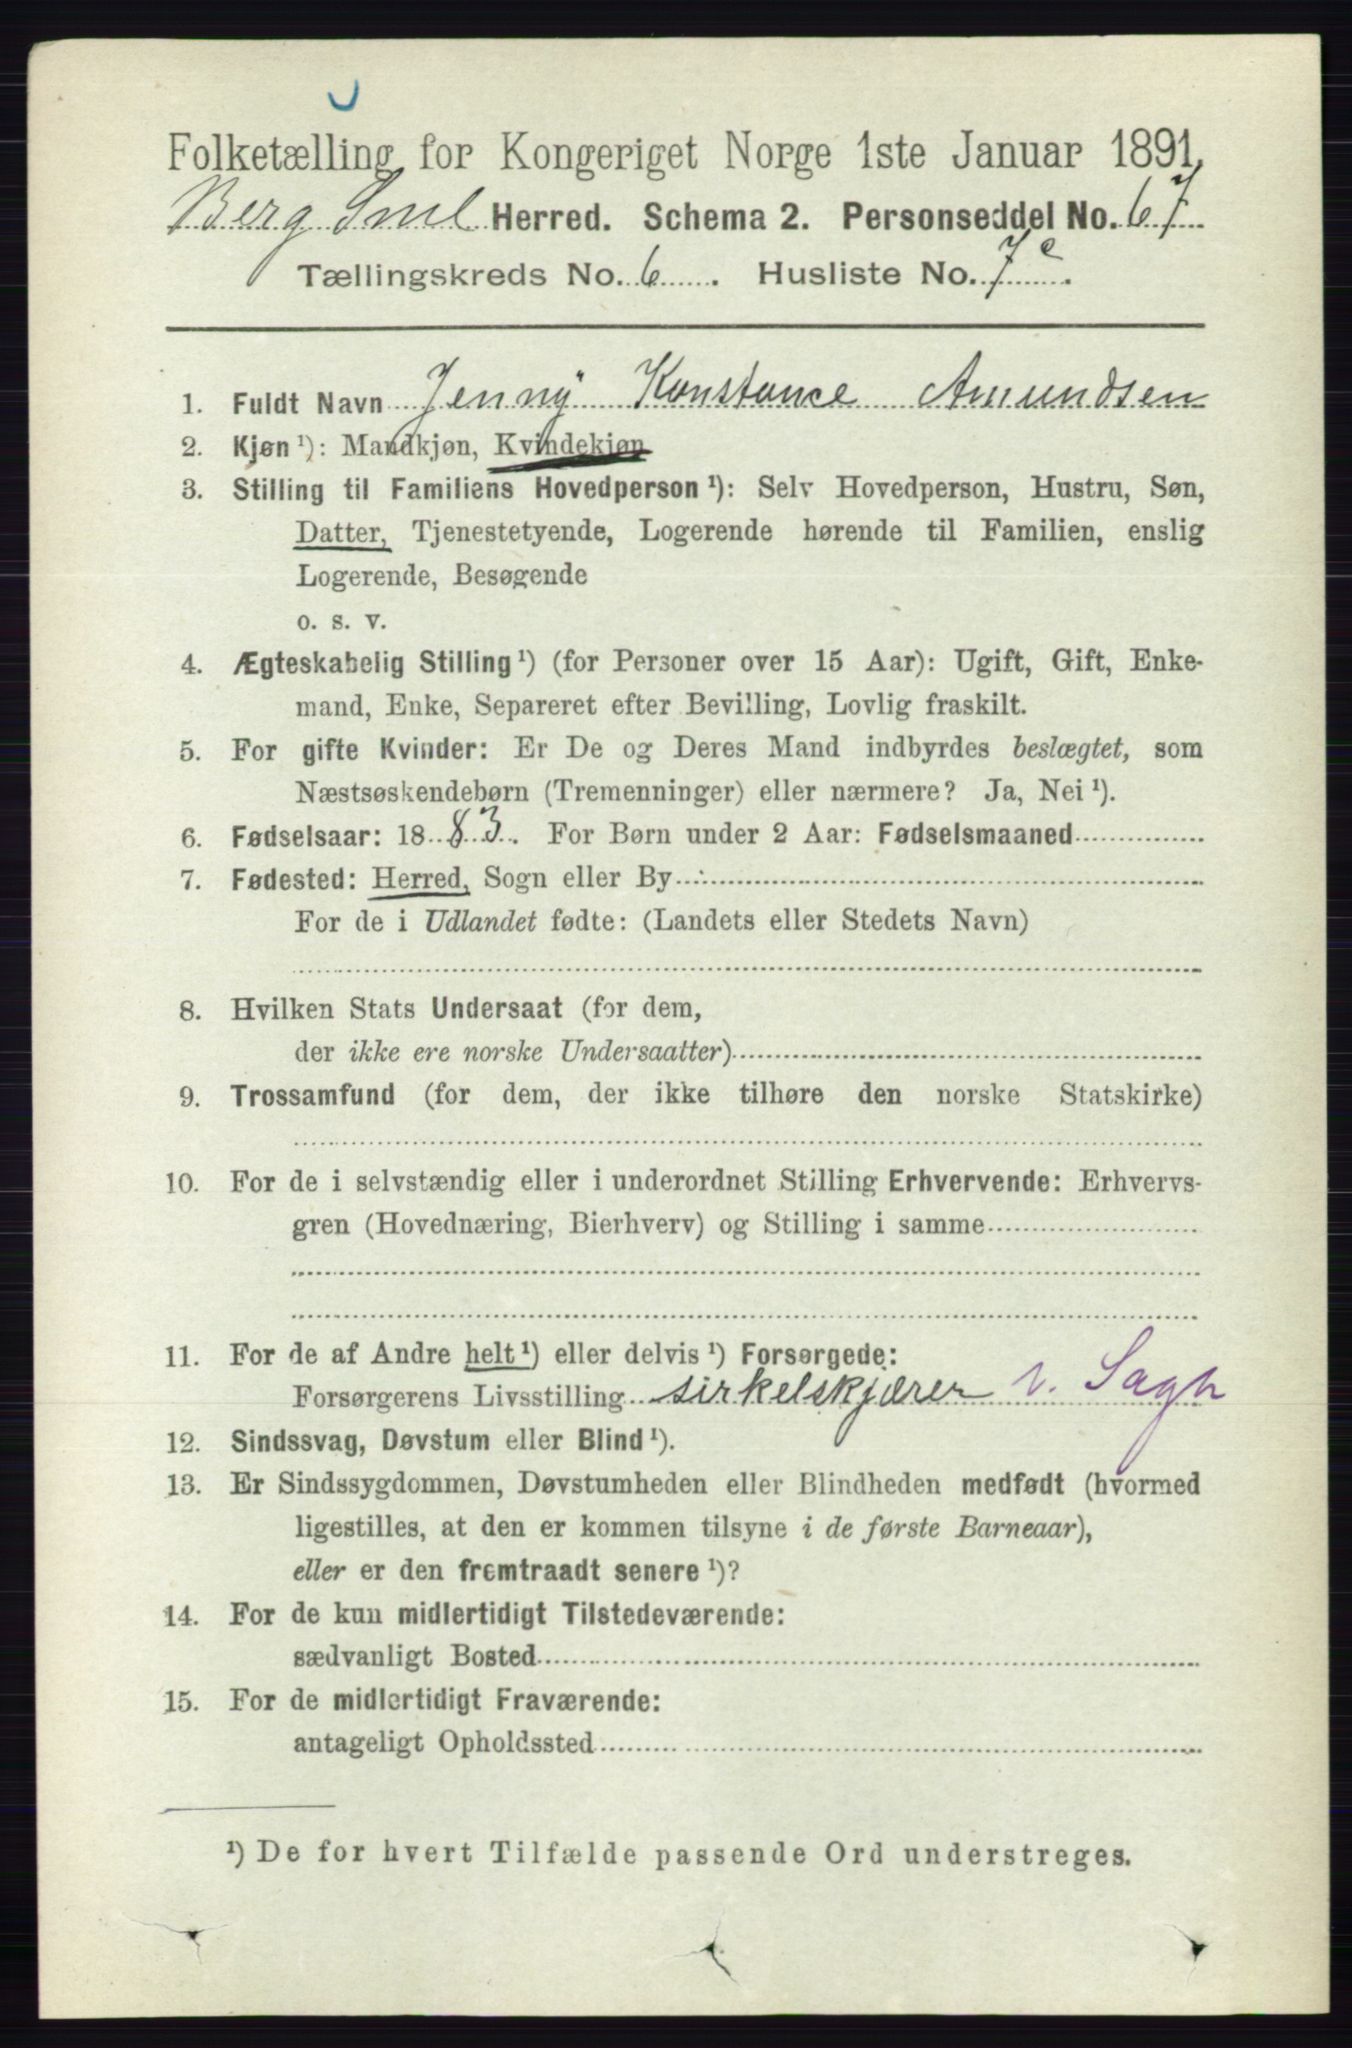 Folketælling for Kongeriget Norge 1ste Januar 1891.
Berg Smel Herred. Schema 2. Personseddel No. 67
Tællingskreds No. 6. Husliste No. 7c.
1. Fuldt Navn Jenny Konstance Amundsen
2. Kjøn ¹): Mandkjøn, Kvindekjøn
3. Stilling til Familiens Hovedperson ¹): Selv Hovedperson, Hustru, Søn,
Datter, Tjenestetyende, Logerende hørende til Familien, enslig
Logerende, Besøgende
o. s. v.
4. Ægteskabelig Stilling ¹) (for Personer over 15 Aar): Ugift, Gift, Enke-
mand, Enke, Separeret efter Bevilling, Lovlig fraskilt.
5. For gifte Kvinder: Er De og Deres Mand indbyrdes beslægtet, som
Næstsøskendebørn (Tremenninger) eller nærmere? Ja, Nei ¹).
6. Fødselsaar: 1883. For Børn under 2 Aar: Fødselsmaaned
7. Fødested: Herred, Sogn eller By
For de i Udlandet fødte: (Landets eller Stedets Navn)
8. Hvilken Stats Undersaat (for dem,
der ikke ere norske Undersaatter)
9. Trossamfund (for dem, der ikke tilhøre den norske Statskirke)
10. For de i selvstændig eller i underordnet Stilling Erhvervende: Erhvervs-
gren (Hovednæring, Bierhverv) og Stilling i samme
11. For de af Andre helt ¹) eller delvis ¹) Forsørgede:
Forsørgerens Livsstilling sirkelskjærer v. Sagb
12. Sindssvag, Døvstum eller Blind ¹).
13. Er Sindssygdommen, Døvstumheden eller Blindheden medfødt (hvormed
ligestilles, at den er kommen tilsyne i de første Barneaar),
eller er den fremtraadt senere ¹)?
14. For de kun midlertidigt Tilstedeværende:
sædvanligt Bosted
15. For de midlertidigt Fraværende:
antageligt Opholdssted
¹) De for hvert Tilfælde passende Ord understreges.